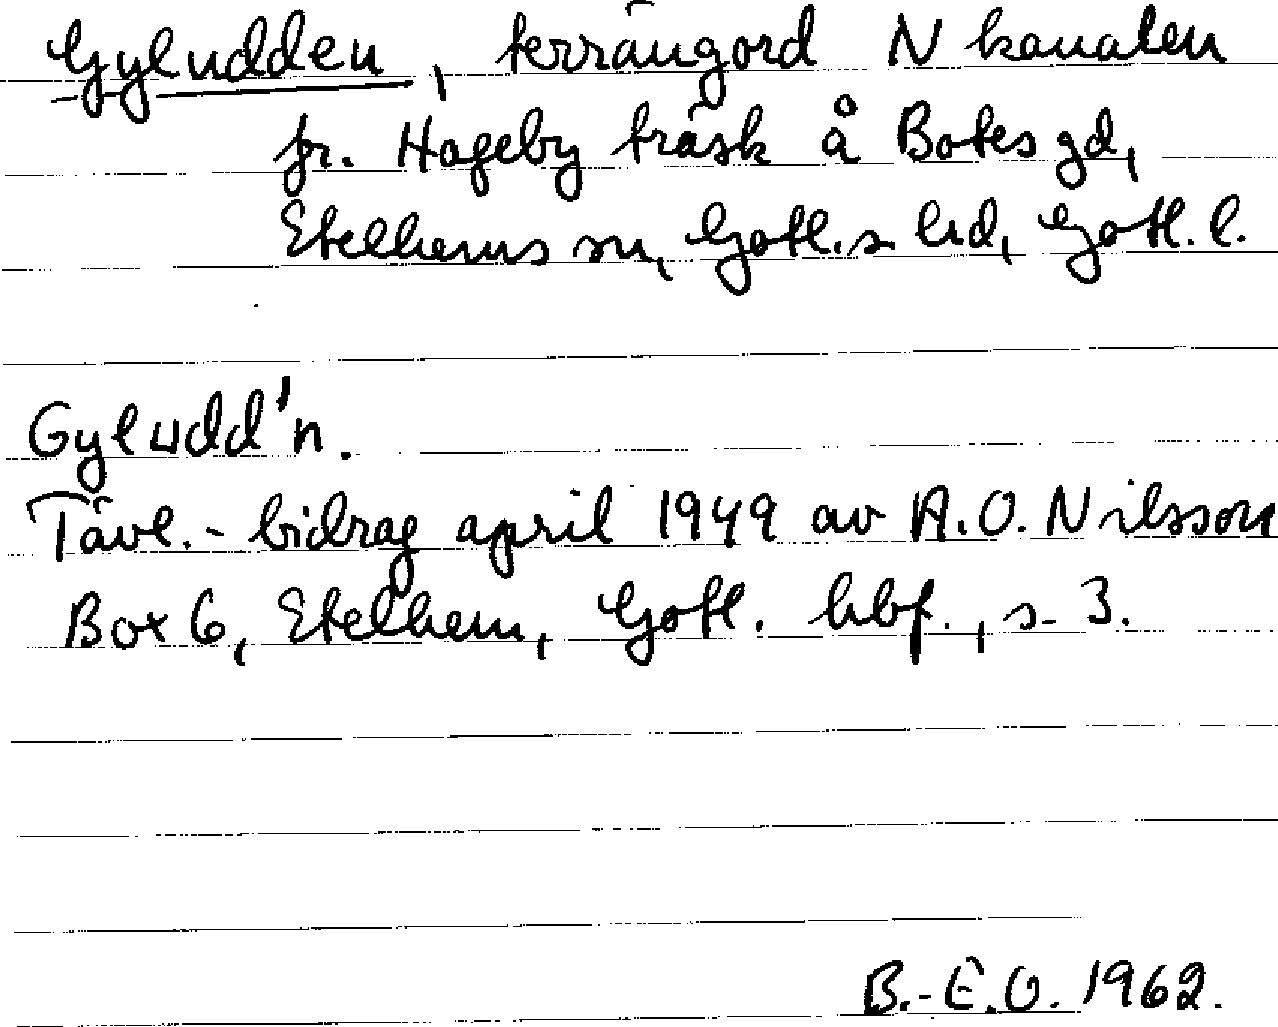 Gyludden, terrängord N kanalen
fr. Hageby träsk å Botes gd,
Etelhems sn, Gotl. s. hd, Gotl. l.
Gyludd'n.
Tävl.-bidrag april 1949 av A.O. Nilsson
Box 6, Etelhem, Gotl. hbf., s. 3.
B.-E.O. 1962.